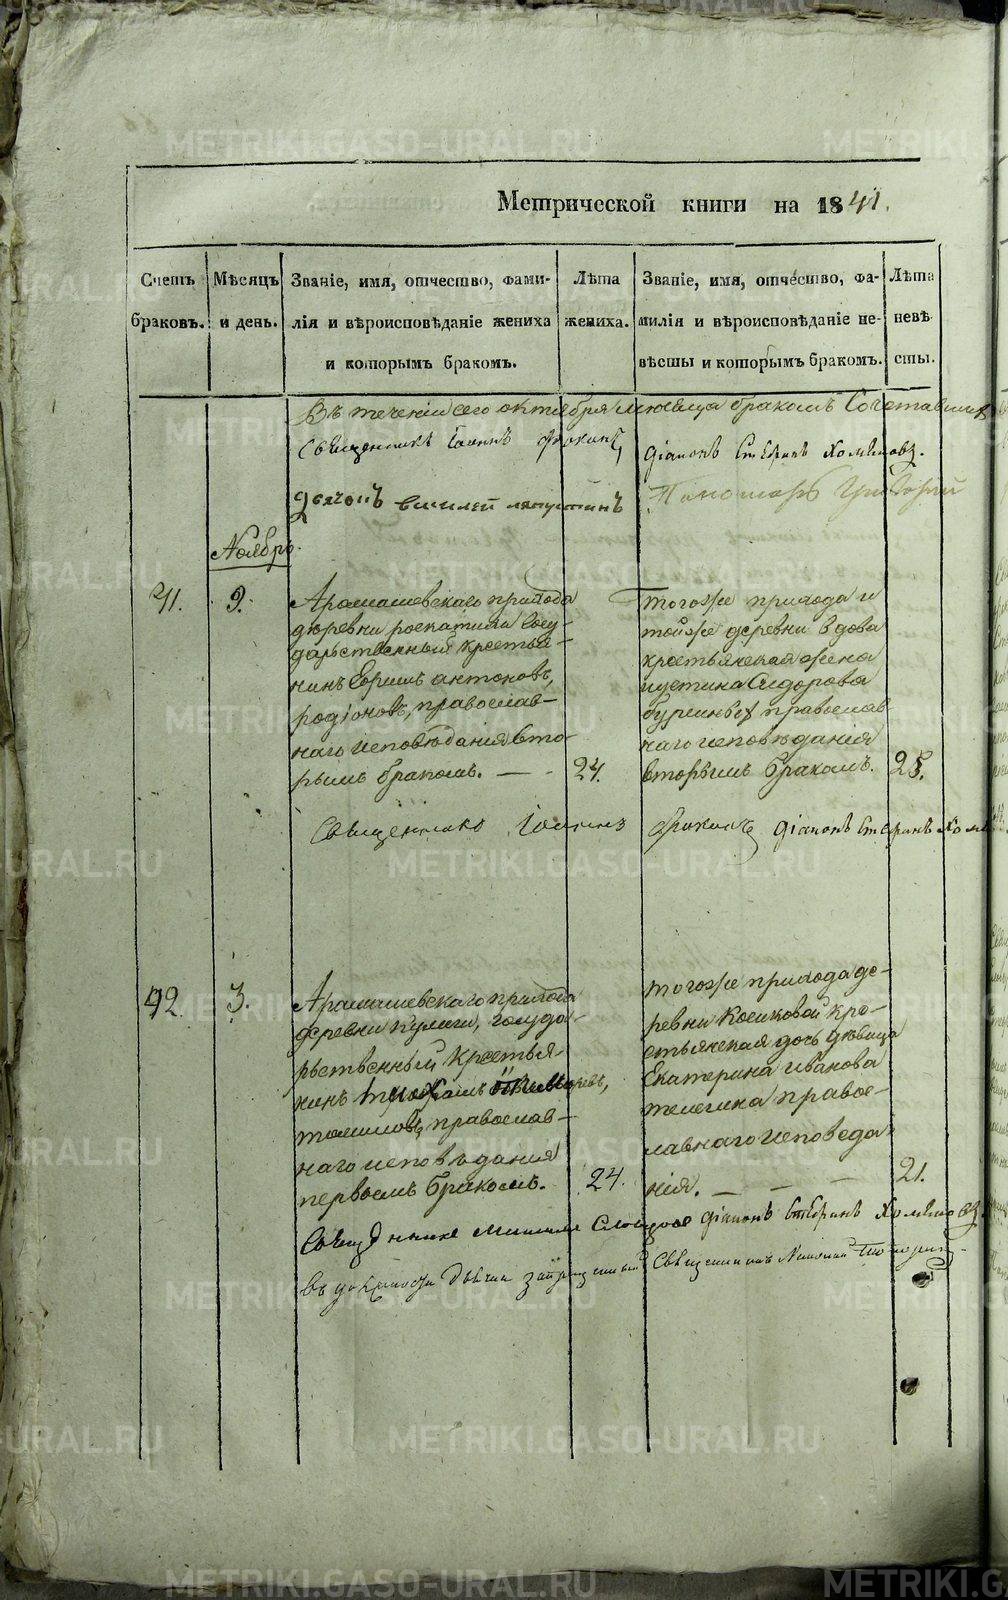 Метрической книги на 1841.
Счетъ браковъ.
Мѣсяцъ и день.
Званіе, имя, отчество, фами-
лія и вѣроисповѣданіе жениха
и которымъ бракомъ.
Лѣта жениха.
Званіе, имя, отчество, фа-
милія и вѣроисповѣданіе не-
вѣсты и которымъ бракомъ.
Лѣта невѣ
сты.
Въ теченіи сего октября месяца бракомъ
Священникъ Іоаннъ
діаконъ Стефанъ Хомяковъ.
Дьячокъ василей лапустинъ
Пономарь Григорий
Ноябрь.
9.
Арамашевскаго прихода
деревни роскатихи Госу-
дарьственный крестья-
нинъ Ефимъ антоновъ,
родіоновъ, православ-
наго исповѣданія вто-
рымъ бракомъ.
24.
тогоже прихода и
тойже деревни вдова
крестьянская жена
иустина Сидорова
православ
наго исповѣданія
вторымъ бракомъ.
25.
Священникъ Іоаннъ
діаконъ Стефанъ
42.
3.
Арамашевскаго прихода
деревни кулиги, госуда-
рьственный крестья-
нинъ
томиловъ, православ-
наго исповѣданія
первымъ бракомъ.
24.
тогоже прихода де-
ревни Косиковой кре-
стьянская дочь дѣвица
Екатерина иванова
телегина правос-
лавнаго исповеда
нія.
21.
діаконъ Стефанъ Хомяковъ.
въ должности дьячка запрещенный Священникъ Николай
METRIKI.GASO-URAL.RU